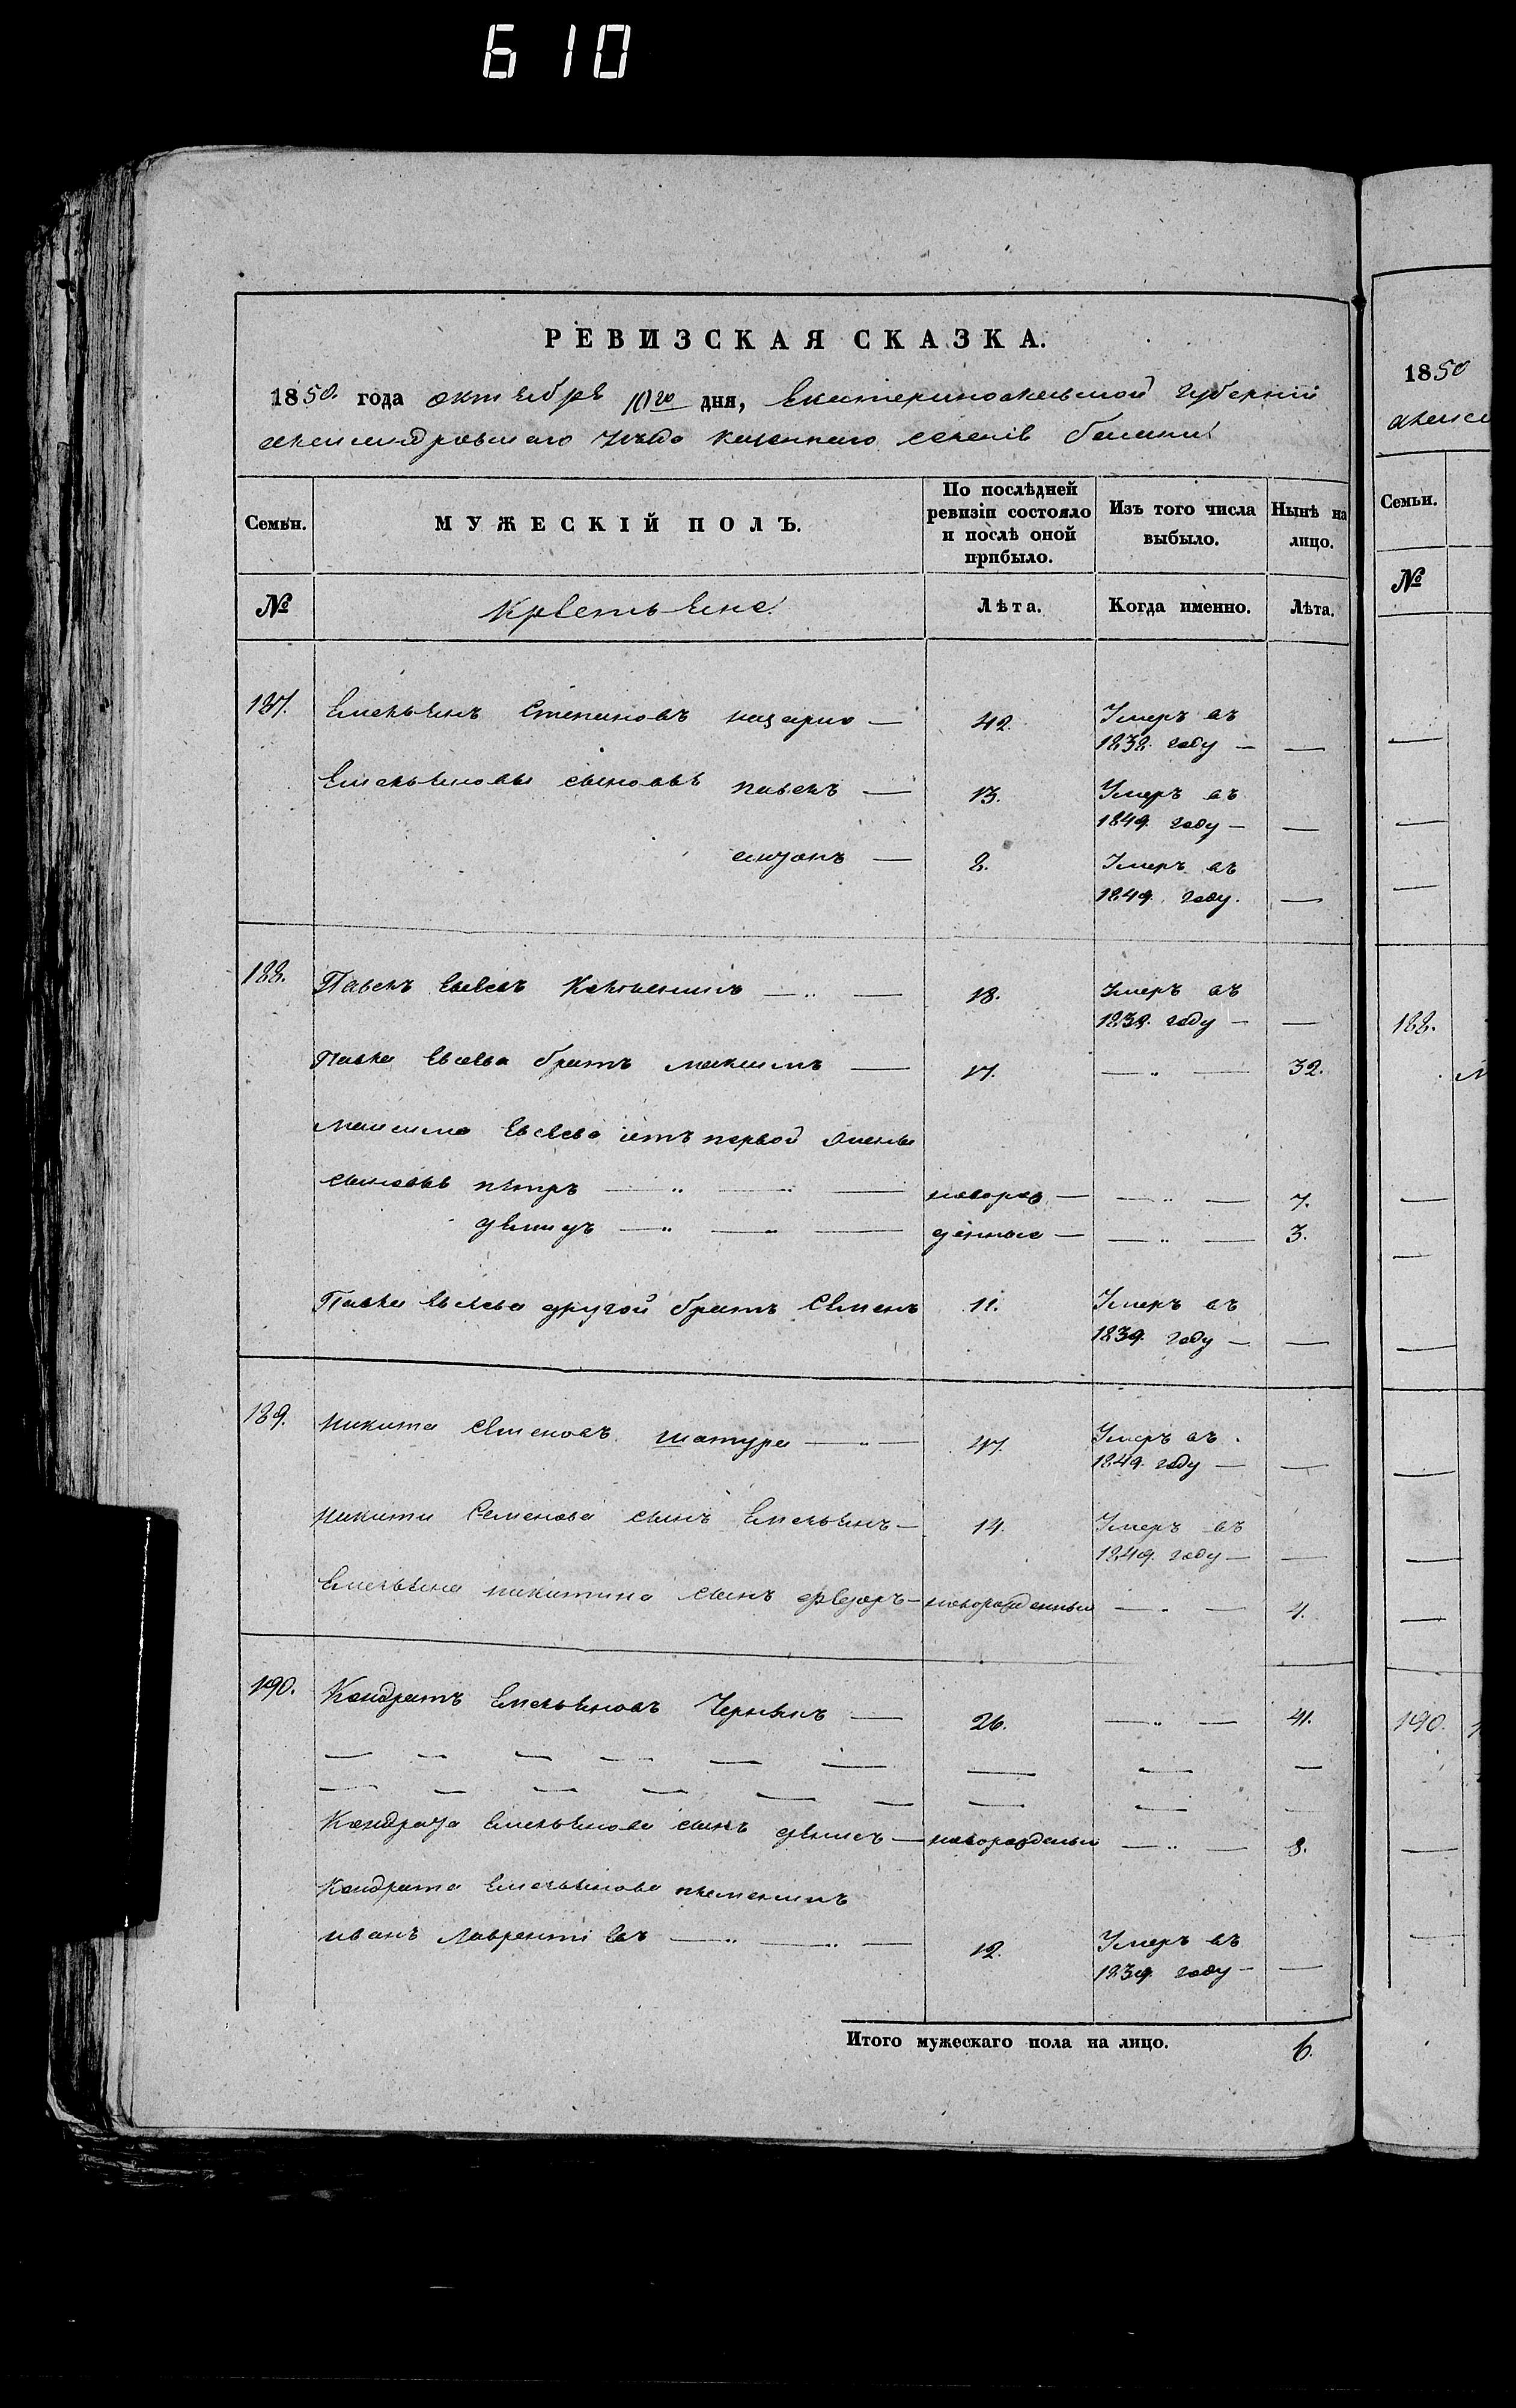 610
РЕВИЗСКАЯ СКАЗКА.
1850. года октября 10го дня, Екатеринославской губерніи
александровскаго уѣзда казеннаго селенія
Семьи.
МУЖЕСКІЙ ПОЛЪ.
По послѣдней ревизіи состояло и послѣ оной прибыло.
Изъ того числа выбыло.
Нынѣ на лицо.
№
Крестьяне
Лѣта.
Когда именно.
Лѣта.
187. Емельянъ Степановъ — 42. Умеръ въ
1838. году — —
Емельяновы сыновья павелъ — 13. Умеръ въ
1849. году — —
— 8. Умеръ въ
1849. году. —
188. Павелъ Евсеевъ — „ — 18. Умеръ въ
году — —
Павла Евсеева братъ максимъ — 17. — „ — 32.
максима Евсеева отъ первой жены
сыновья пётръ — „ — „ — новорож — — „ — 7.
— „ — „ — денные — — „ — 3.
Павла Евсеева другой братъ Семенъ 11. Умеръ въ
1839. году — —
189. никита Семеновъ шатура — „ — 47. Умеръ въ
1849. году — —
никиты Семенова сынъ Емельянъ — 14. Умеръ въ
1849. году — —
Емельяна никитина сынъ — новорожденный — „ — 4.
190. Кондратъ Емельяновъ Чернякъ — 26. — „ — 41.
Кондрата Емельянова сынъ денисъ — новорожденый — „ — 8.
Кондрата Емельянова племянникъ
иванъ Лаврентіевъ — „ — „ — 12. Умеръ въ
1839. году — —
Итого мужескаго пола на лицо. 6.
1850
Семьи.
№
188.
190.